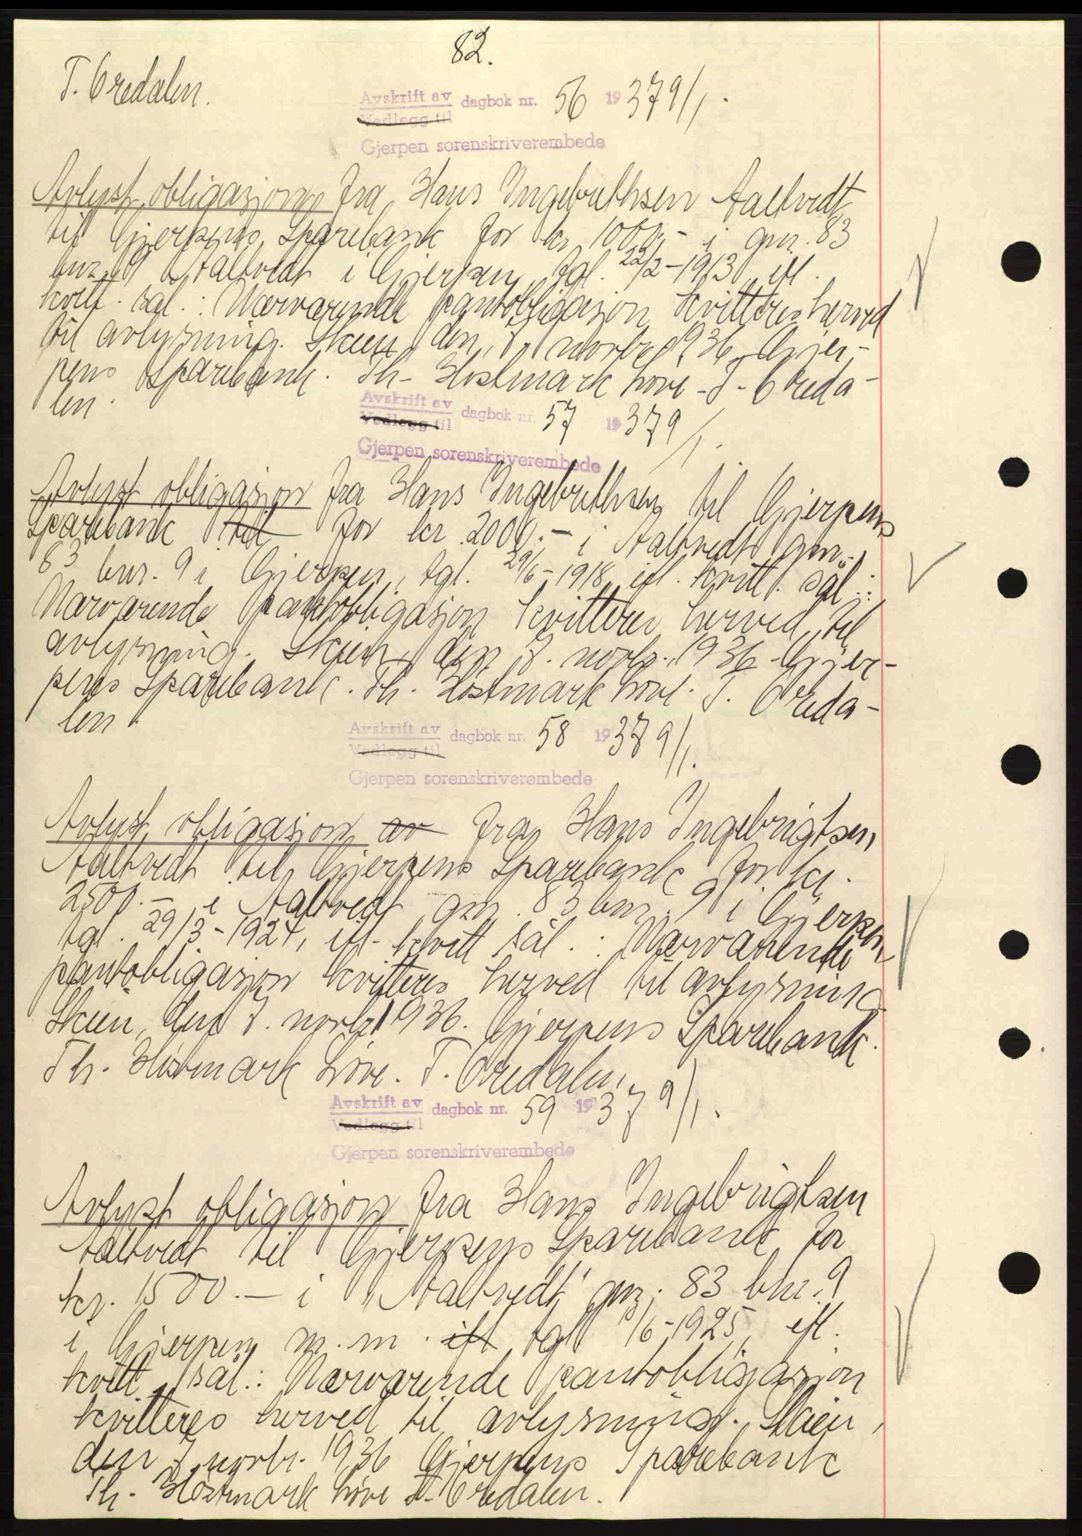 82.
T. Oredalen.
Avskrift av dagbok nr. 56 1937 9/1.
Vedlegg til
Gjerpen sorenskriverembede
Avlyst obligasjon fra Hans Ingebrethsen Aaltvedt
til Gjerpens Sparebank for kr. 1000,- i gnr. 83
bnr. 9 Aaltvedt i Gjerpen, tgl. 22/2-1913 ifl.
kvitt. sål.: Nærværende pantobligasjon kvitteres herved
til avlysning. Skien, den 7. novbr. 1936. Gjer-
pens Sparebank. Th. Høstmark Løve. T. Oreda-
len.
Avskrift av dagbok nr. 57 1937 9/1.
Vedlegg til
Gjerpen sorenskriverembede
Avlyst obligasjon fra Hans Ingebrethsen til Gjerpens
Sparebank til for kr. 2000.- i Aaltvedt gnr.
83 bnr. 9 i Gjerpen, tgl. 29/6-1918, ifl. kvitt. sål.:
Nærværende pantobligasjon kvitteres herved til
avlysning. Skien, den 7. novbr. 1936. Gjer-
pens Sparebank. Th. Høstmark Løve. T. Oreda-
len.
Avskrift av dagbok nr. 58 1937 9/1.
Vedlegg til
Gjerpen sorenskriverembede
Avlyst obligasjon av fra Hans Ingebrigtsen
Aaltvedt til Gjerpens Sparebank for kr.
2500.- i Aaltvedt gnr. 83 bnr. 9 i Gjerpen
tgl. 29/3-1924, ifl. kvitt sål.: Nærværende
pantobligasjon kvitteres herved til avlysning.
Skien, den 7. novbr. 1936. Gjerpens Sparebank.
Th. Høstmark Løve. T. Oredalen.
Avskrift av dagbok nr. 59 1937 9/1.
Vedlegg til
Gjerpen sorenskriverembede
Avlyst obligasjon fra Hans Ingebrigtsen
Aaltvedt til Gjerpens Sparebank for
kr. 1500.- i "Aaltvedt" gnr. 83 bnr. 9
i Gjerpen m. m. ifl tgl. /6-1925, ifl.
kvitt. sål.: Nærværende pantobligasjon
kvitteres herved til avlysning. Skien,
den 7. novbr. 1936 Gjerpens Sparebank
Th. Høstmark Løve T. Oredalen.